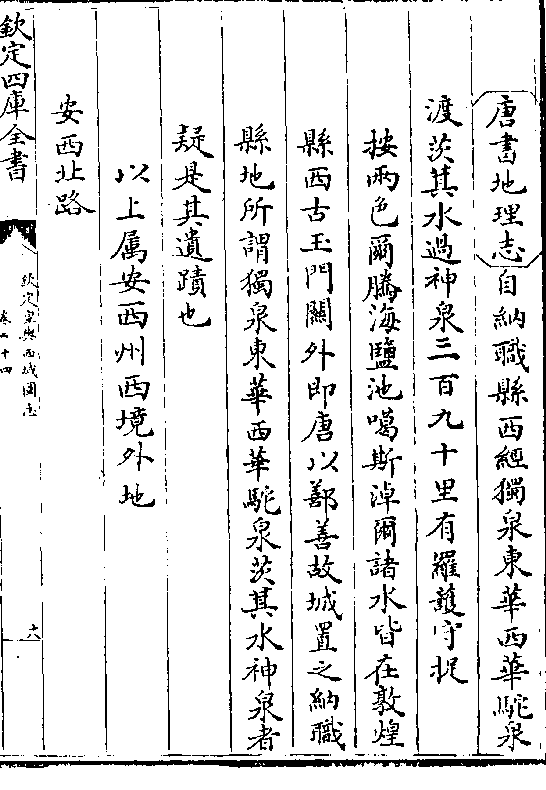 唐書地理志自納職縣西經獨泉東華西華駝泉
渡茨其水過神泉三百九十里有羅護守捉
按兩色爾騰海鹽池噶斯淖爾諸水皆在敦煌
縣西古玉門關外即唐以鄯善故城置之納職
縣地所謂獨泉東華西華駝泉茨其水神泉者
疑是其遺蹟也
以上属安西州西境外地
安西北路
欽定四庫全書
欽定皇輿西域圖志
卷二十四
六